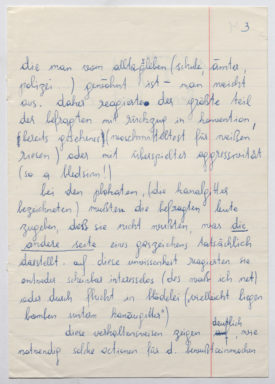 3
die man vom alltagsleben (schule, ämter,
polizei...) gewöhnt ist - man weicht
aus. daher reagierte der größte teil
der befragten mit rückzug in konvention,
bereits gesehenes (waschmitteltest für weißen
riesen) oder mit überspielter aggressivität
(so a bledsinn!)
bei den plakaten, (die kanalgitter
bezeichneten) mußten die befragten leute
zugeben, daß sie nicht wußten, was die
andere seite eines gaszeichens tatsächlich
darstellt. auf diese unwissenheit reagierten sie
entweder scheinbar interesselos (des waaß ich net)
oder durch flucht in blödelei (vielleicht liegen
bomben unterm kanalgitter")
diese verhaltensweisen zeigen deutlich, wie
notwendig solche actionen für d. bewußtseinmachen